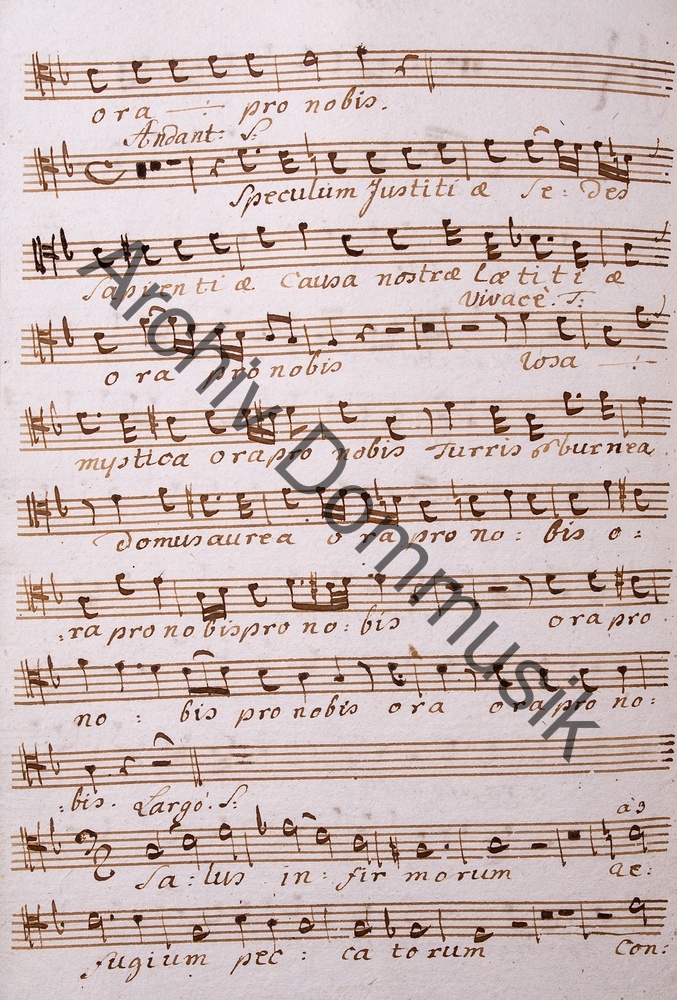 ora —:— pro nobis.
Andant: S:
Speculum Justiti æ se: des
Sapienti æ Causa nostræ lætiti æ
Vivace. S:
ora pro nobis Rosa —:—
mystica ora pro nobis Turris eburnea
domus aurea ora pro no: bis o:
:ra pro nobis pro no: bis ora pro
no: bis pro nobis ora ora pro no:
:bis. Largo. S:
a 3
Sa: lus in: firmorum Re:
fugium pec: ca torum Con:
Archiv Dommusik